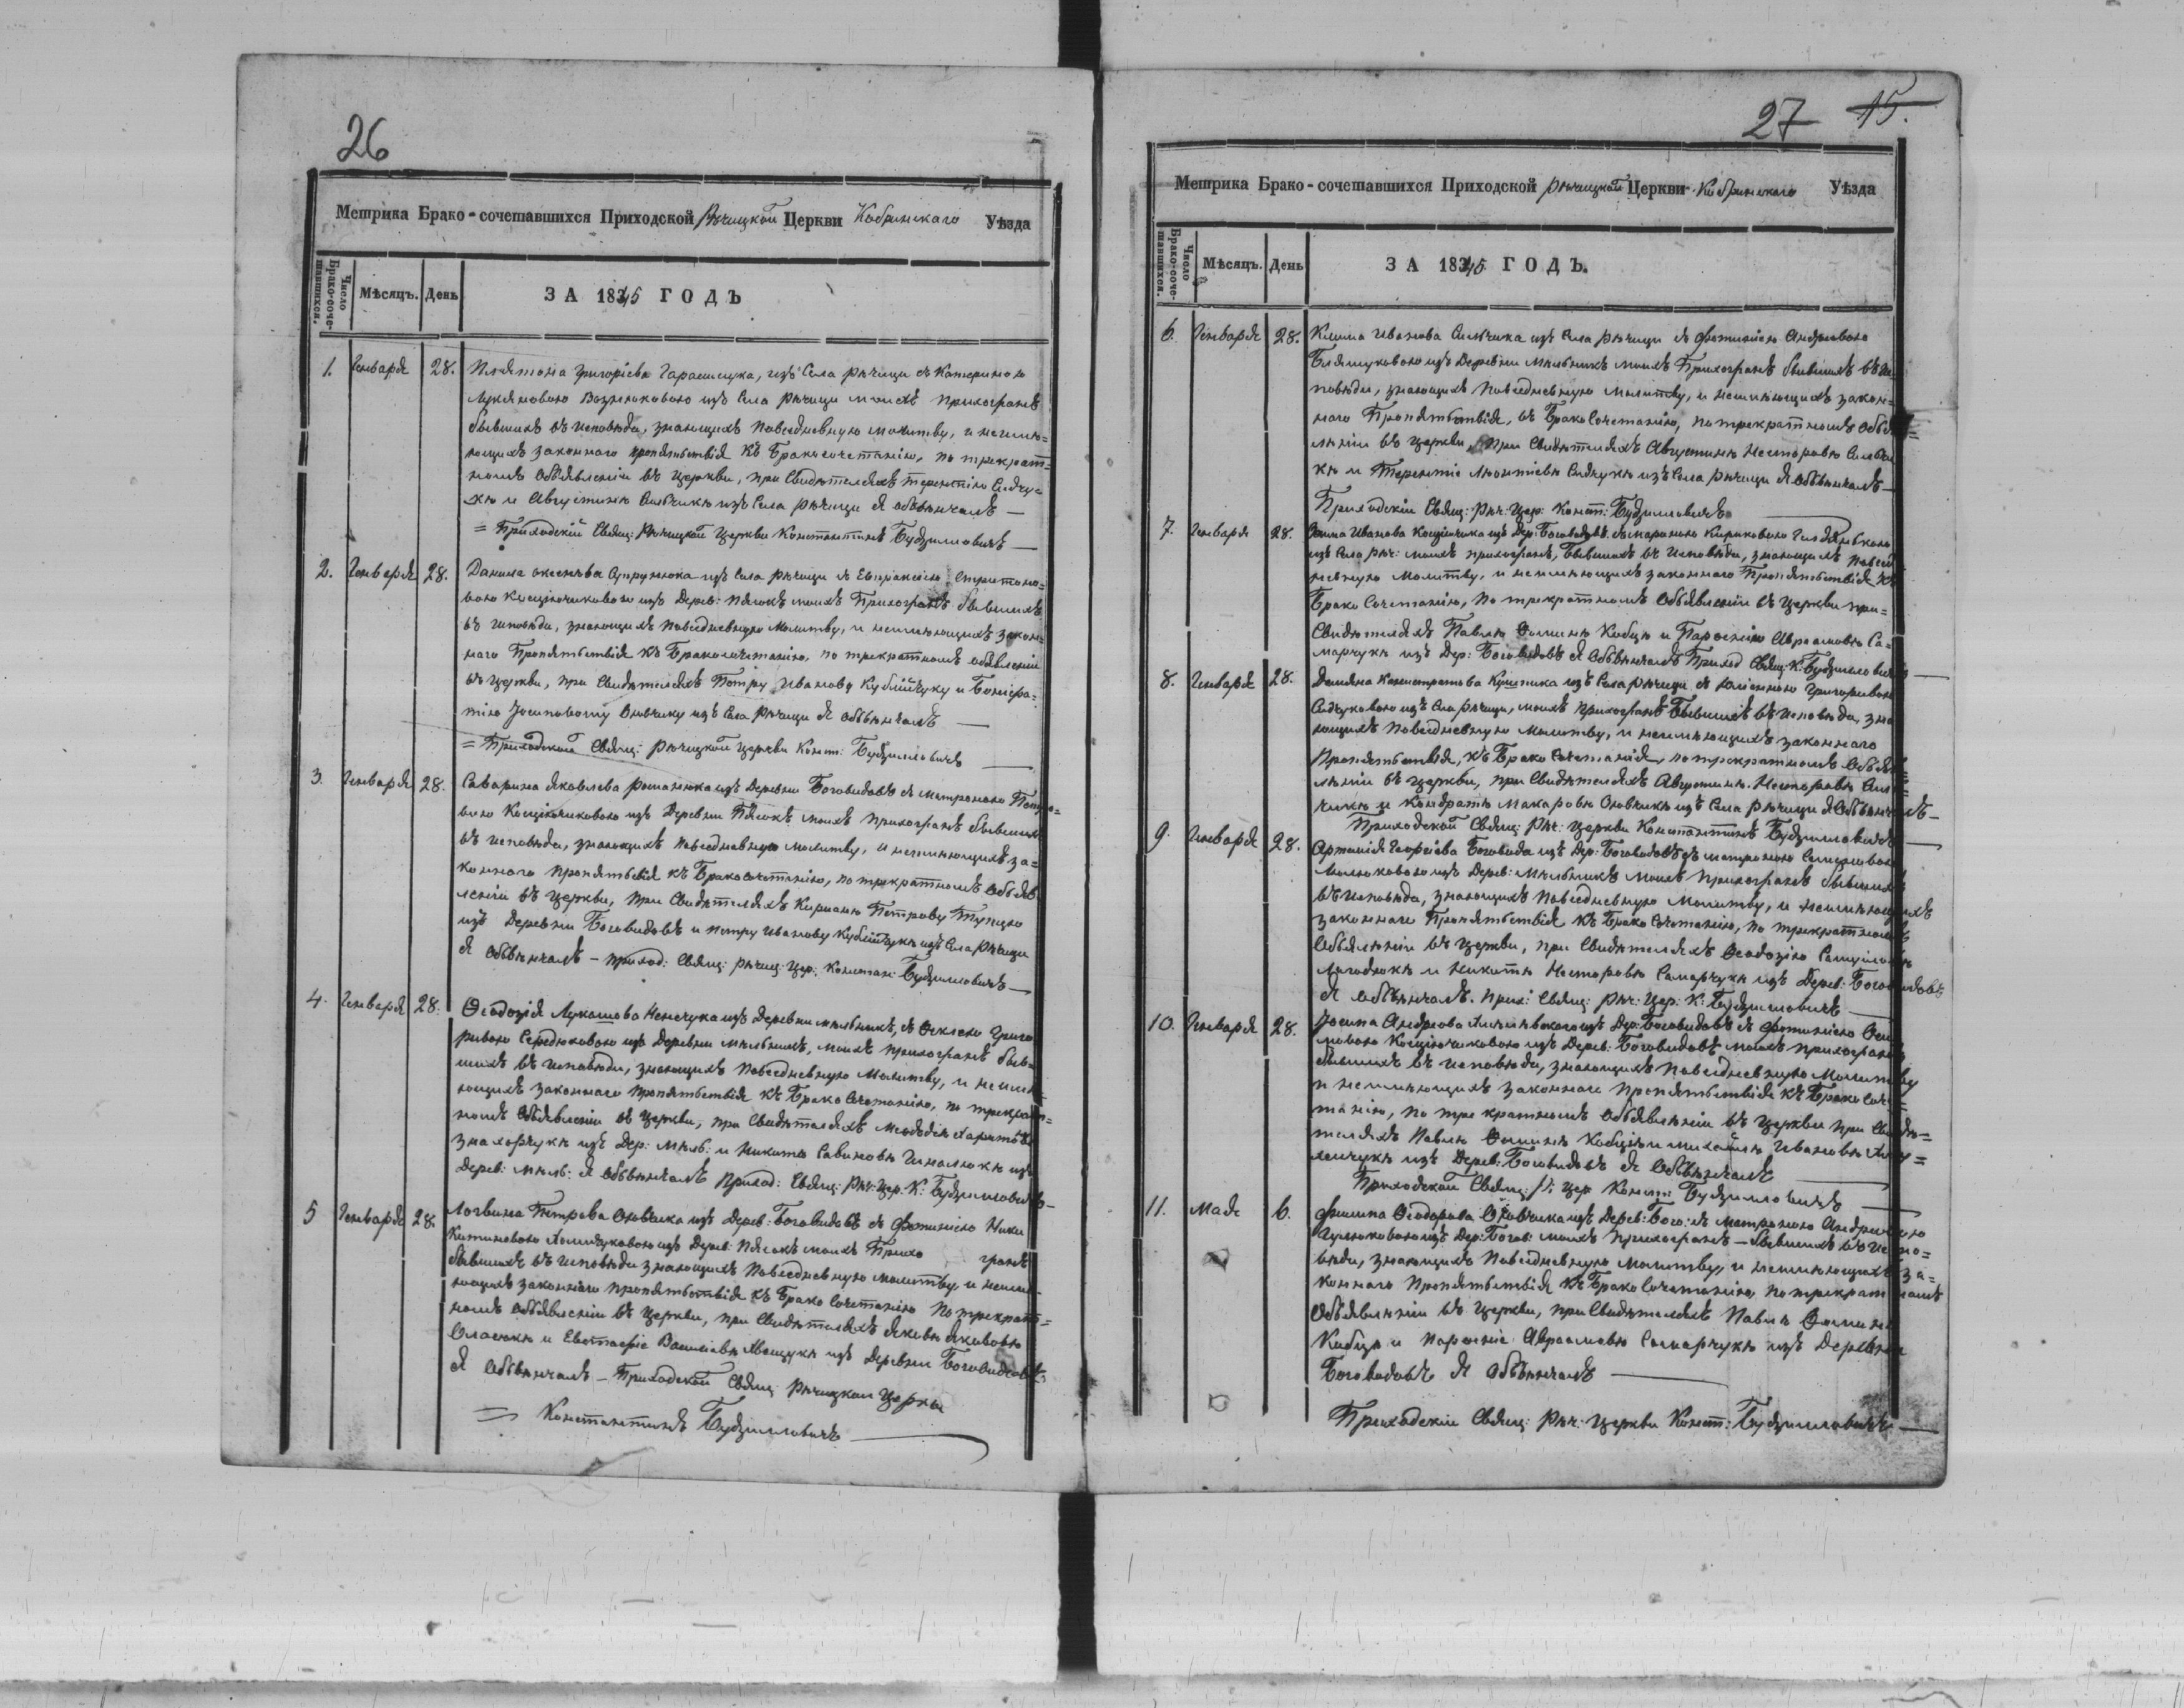 26
Метрика Брако-сочетавшихся Приходской Рѣчицкой Церкви Кобринскаго Уѣзда
Число Брако-соче-тавшихся.
Мѣсяцъ.
День
ЗА 1845 ГОДЪ
1. Генваря 28. Платона Григоріева Гарасимука, изъ Села Рѣчицы съ Катериною
Лукяновою Вознюковою изъ Села Рѣчицы моихъ прихожанъ
бывшихъ въ исповѣди, знающихъ повседневную молитву, и неимѣ=
ющихъ законнаго препятствія къ Бракосочетанію, по трекрат=
номъ объявленіи въ Церкви, при Свидѣтеляхъ Терентію Сачу=
ку и Августину Сильчику изъ Села Рѣчицы я обвѣнчалъ —
= Приходскій Свящ: Рѣчицкой Церкви Константинъ Будзилловичъ —
2. Генваря 28. Данила Супрунюка изъ Села Рѣчицы съ Евпраксіею Спиридоно=
вою Косцючиковою изъ Дерев: Пясокъ моихъ Прихожанъ бывшихъ
въ исповѣди, знающихъ повседневную молитву, и неимѣющихъ закон=
наго Препятствія къ Бракосочетанію, по трекратномъ объявленіи
въ Церкви, при Свидѣтеляхъ Петру Иванову Кублійчуку и Бонифа=
тію Іосиповому Оновчику изъ Села Рѣчицы я обвѣнчалъ —
= Приходской Свящ: Рѣчицкой Церкви Конст: Будзилловичъ —
3. Генваря 28. Саварина Яковлева Романюка изъ Деревни Боговидовъ съ Матроною Петро=
вою Косцючиковою изъ Деревни Пясокъ моихъ прихожанъ бывшихъ
въ исповѣди, знающихъ повседневную молитву, и неимѣющихъ за=
коннаго препятствія къ Бракосочетанію, по трекратномъ объяв
леніи въ Церкви, при Свидѣтеляхъ Кирианю Петрову Тупицю
изъ Деревни Боговидовъ и Петру Иванову Кублійчуку изъ Села Рѣчицы
я обвѣнчалъ — приход: Свящ: Рѣчиц: Цер: Констан: Будзилловичъ —
4. Генваря 28. Ѳеодозія Лукашова изъ Деревни Мельникъ, съ Ѳеклою Григо
рiвою Середюковою изъ Деревни Мельникъ, моихъ прихожанъ быв=
шихъ въ исповѣди, знающихъ повседневную молитву, и неимѣ=
ющихъ законнаго препятствія къ Бракосочетанію, по трекрат=
номъ объявленіи въ Церкви, при Свидѣтеляхъ
изъ Дер: Мель: и Никитѣ Савиновѣ изъ
Дерев: Мель: я обвѣнчалъ Приход: Свящ: Рѣч: Цер. К: Будзилловичъ —
5 Генваря 28. Логвина Петрова Оновчика изъ Дерев: Боговидовъ съ Фотиніею Ники
изъ Дерев: Пясокъ моихъ Прихо жанъ
бывшихъ въ исповѣди знающихъ повседневную молитву, и неимѣ
ющихъ законнаго препятствія къ Брако Сочетанію по трекрат=
номъ объявленіи въ Церкви, при Свидѣтеляхъ Яковѣ Якововѣ
и Евстафіе Василіевѣ изъ Деревни Боговидовъ
я обвѣнчалъ — Приходской Свящ Рѣчицкой Церкви
= Константинъ Будзилловичъ —
27 15.
Метрика Брако-сочетавшихся Приходской Рѣчицкой Церкви Кобринскаго Уѣзда
Число Брако-соче-тавшихся.
Мѣсяцъ.
День
ЗА 1845 ГОДЪ.
6. Генваря 28. Клима Иванова Сильчика изъ Села Рѣчицы съ Фотиніею Андреевою
изъ Деревни Мельникъ моихъ Прихожанъ бывшихъ въ ис
повѣди, знающихъ повседневную молитву, и неимѣющихъ закон=
наго Препятствія, въ Брако Сочетанію, по трекратномъ объяв=
леніи въ Церкви, при Свидѣтеляхъ Августинѣ Несторовѣ Сильчи
кѣ и Терентіе Леонтіевѣ изъ Села Рѣчицы я обвѣнчалъ —
Приходскій Свящ: Рѣч: Цер: Конст: Будзилловичъ —
7. Генваря 28. Иванова Косцючика изъ Дер: Боговидовъ съ Маріанною Кириковою
изъ Села Рѣч: моихъ прихожанъ, бывшихъ въ исповѣди, знающихъ повсед
невную молитву, и неимѣющихъ законнаго Препятствія къ
Брако Сочетанію, по трекратномъ объявленіи въ Церкви при=
Свидѣтеляхъ Павлѣ Ѳоминѣ Кобцю и Пархеніе Авраамовѣ Са=
марчукѣ изъ Дер: Боговидовъ я обвѣнчалъ Приход Свящ: К: Будзилловичъ —
8. Генваря 28. Демяна изъ Села Рѣчицы съ Юліанною Григоріевою
изъ Села Рѣчицы, моихъ прихожанъ Бывшихъ въ исповѣди, зна
ющихъ повседневную молитву, и неимѣющихъ законнаго
Препятствія, къ Брако Сочетанія, по трекратномъ объяв=
леніи въ Церкви, при Свидѣтеляхъ Августинѣ Несторовѣ Силь=
чикѣ и Кондратѣ Макаровѣ Оновчикѣ изъ Села Рѣчицы я обвѣнчалъ —
Приходской Свящ: Рѣч: Церкви Константинъ Будзилловичъ —
9. Генваря 28. Артемія Георгіева Боговида изъ Дер: Боговидовъ съ Матроною Самуиловою
изъ Дерев: Мельникъ моихъ прихожанъ бывшихъ
въ исповѣди, знающихъ повседневную молитву, и неимѣющихъ
законнаго Препятствія къ Брако Сочетанію, по трекратномъ
объявленіи въ Церкви, при Свидѣтеляхъ Ѳеодозію Самуилов
и Никитѣ Несторовѣ Самарчукѣ изъ Дерев: Боговидовъ
я обвѣнчалъ. Прих: Свящ: Рѣч: Цер: К: Будзилловичъ —
10. Генваря 28. Іосипа Андреова изъ Дер: Боговидовъ съ Фотиніею
Косцючиковою изъ Дерев: Боговидовъ моихъ прихожанъ
бывшихъ въ исповѣди, знающихъ повседневную молитву
и неимѣющихъ законнаго препятствія къ Брако Соче=
танію, по трекратномъ объявленіи въ Церкви при Свидѣ=
теляхъ Павлѣ Ѳоминѣ Кобцѣ и Михайлѣ Ивановѣ
изъ Дерев: Боговидовъ я обвѣнчалъ —
Приходской Свящ: Р: Цер Конст: Будзилловичъ —
11. Мая 6. Филипа Ѳеодорова Оновчика изъ Дерев: Бого: съ Матроною Андреевою
изъ Дер: Богов: моихъ прихожанъ — бывшихъ въ испо=
вѣди, знающихъ повседневную молитву, и неимѣющихъ за=
коннаго Препятствія къ Брако Сочетанію, по трекратномъ
объявленіи въ Церкви, при Свидѣтеляхъ Павлѣ Ѳоминѣ
Кобцѣ и Пархеніе Авраамовѣ Самарчукѣ изъ Деревни
Боговидовъ я обвѣнчалъ —
Приходскіи Свящ: Рѣч: Церкви Конст: Будзилловичъ —